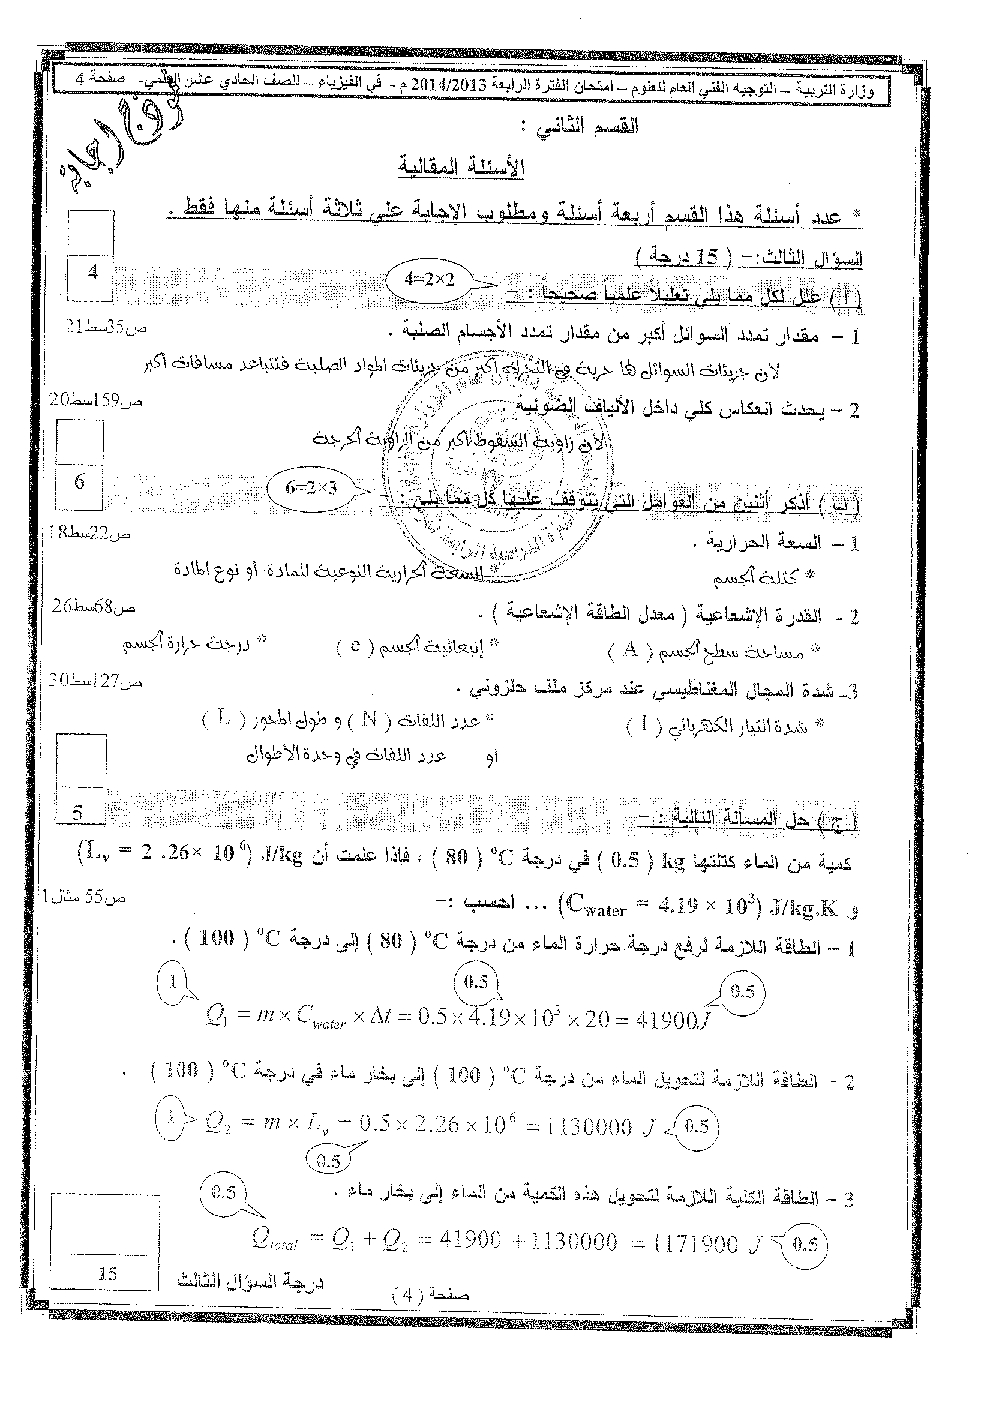 وزارة التربية – التوجيه الفني العام للعلوم – امتحان الفترة الرابعة 2014/2013 م - في الفيزياء – للصف الحادي عشر العلمي- صفحة 4
نموذج إجابة
القسم الثاني :
الأسئلة المقالية
* عدد أسئلة هذا القسم أربعة أسئلة ومطلوب الإجابة على ثلاثة أسئلة منها فقط .
السؤال الثالث:- ( 15 درجة )
4
4=2×2
( أ ) علل لكل مما يلي تعليلاً علمياً صحيحاً : -
ص35سط21
1 - مقدار تمدد السوائل أكبر من مقدار تمدد الأجسام الصلبة .
لأن جزيئات السوائل لها حرية في التحرك أكبر من جزيئات المواد الصلبة فتتباعد مسافات أكبر
ص159سط20
2 - يحدث انعكاس كلي داخل الألياف الضوئية .
لأن زاوية السقوط أكبر من الزاوية الحرجة
6
6=2×3
( ب ) أذكر أثنين من العوامل التي يتوقف عليها كل مما يلي : -
ص22سط18
1 - السعة الحرارية .
* كتلة الجسم * السعة الحرارية النوعية للمادة أو نوع المادة
ص68سط26
2 - القدرة الإشعاعية ( معدل الطاقة الإشعاعية ) .
* مساحة سطح الجسم ( A ) * إنبعاثية الجسم ( e ) * درجة حرارة الجسم
ص127سط30
3- شدة المجال المغناطيسي عند مركز ملف حلزوني .
* شدة التيار الكهربائي ( I ) * عدد اللفات ( N ) و طول المحور ( L )
أو عدد اللفات في وحدة الأطوال
5
( ج ) حل المسألة التالية : -
كمية من الماء كتلتها kg ( 0.5 ) في درجة °C ( 80 ) ، فإذا علمت أن (Lv = 2 .26× 10⁶) J/kg
ص55 مثال1
و (Cwater = 4.19 × 10³) J/kg.K ... احسب :-
1 - الطاقة اللازمة لرفع درجة حرارة الماء من درجة °C ( 80 ) إلى درجة °C ( 100 ) .
1 0.5 0.5
Q₁ = m × Cwater × Δt = 0.5 × 4.19 × 10³ × 20 = 41900J
2 - الطاقة اللازمة لتحويل الماء من درجة °C ( 100 ) إلى بخار ماء في درجة °C ( 100 ) .
1 Q₂ = m × Lv = 0.5 × 2.26 × 10⁶ = 1130000 J 0.5
0.5
3 - الطاقة الكلية اللازمة لتحويل هذه الكمية من الماء إلى بخار ماء .
0.5
Qtotal = Q₁ + Q₂ = 41900 + 1130000 = 1171900 J 0.5
15
درجة السؤال الثالث
صفحة ( 4 )